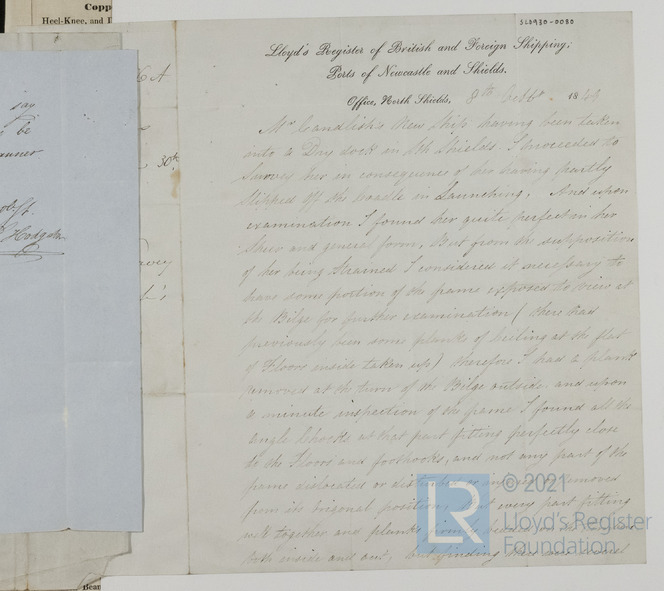 Copp
Heel-Knee, and I
say
be
anner
Hodgson
& A
30th
SLD930-0080
Lloyd's Register of British and Foreign Shipping;
Ports of Newcastle and Shields.
Office, North Shields, 8th 18
Mr Candlish's New Ship having been taken
into a Dry dock in Sth Shields I proceeded to
Survey her in consequence of her having partly
Slipped off the Cradle in Launching, And upon
examination I found her quite perfect in her
Sheer and general form, But from the supposition
of her being Strained I considered it necessary to
have some portion of the frame exposed to view at
the Bilge for further examination (there had
previously been some planks of ceiling at the flat
of Floors inside taken up) therefore I had a plank
removed at the turn of the Bilge outside and upon
a minute inspection of the frame I found all the
angle Chocks at that part fitting perfectly close
to the Floors and foothooks, and not any part of the
frame dislocated or or removed
from its origonal position, but every part fitting
well together and planks
both inside and out, but finding
LR
© 2021
Lloyd's Register
Foundation
Bear